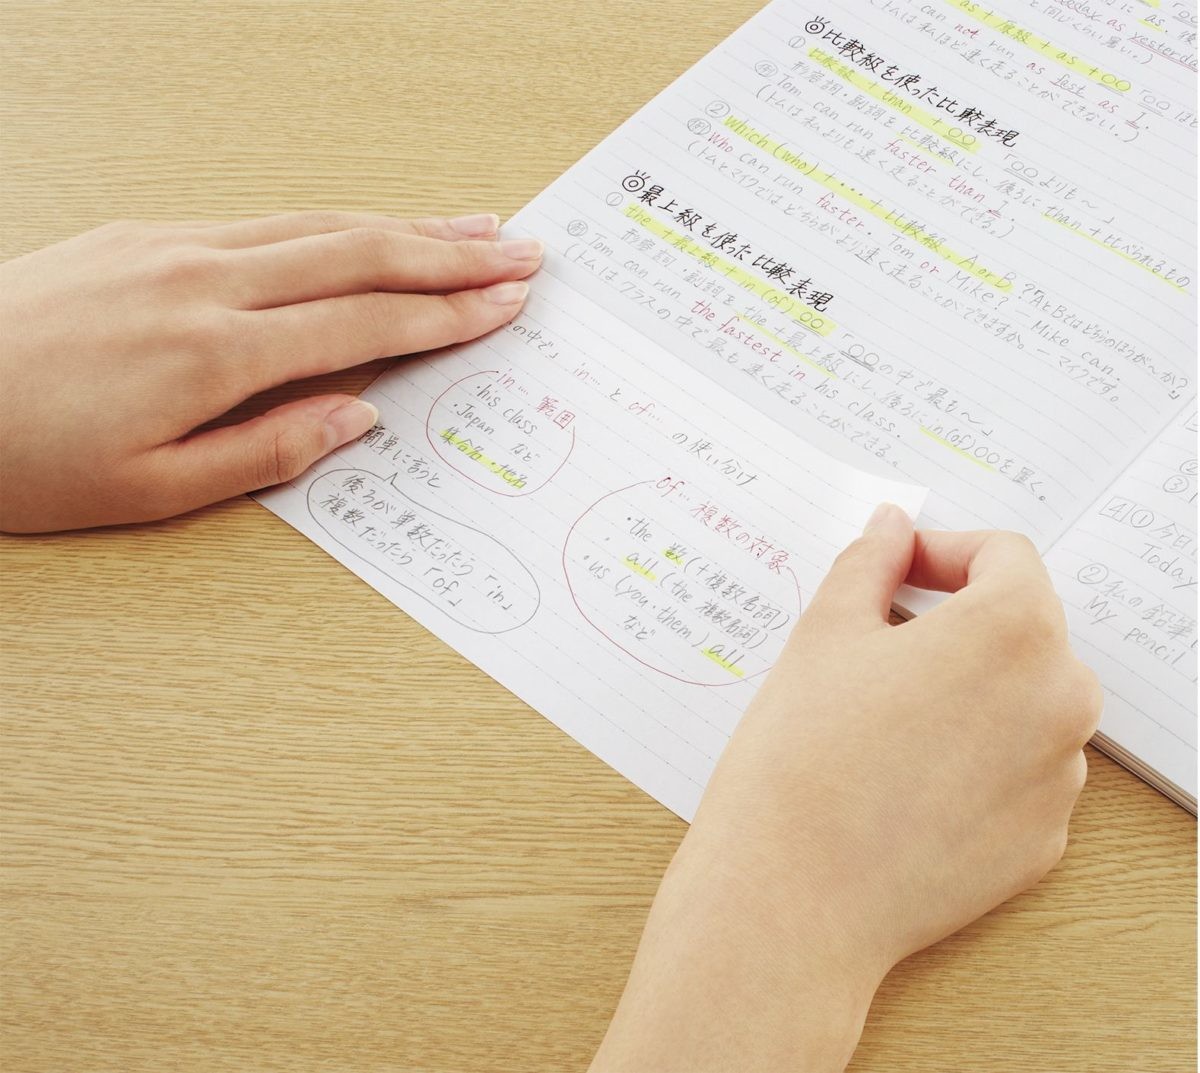 as + 原級 + as + ○○
can not run as fast as I.
(トムは私ほど速く走ることができない.)
◎比較級を使った比較表現
① 比較級 + than + ○○ 「○○よりも～」
形容詞・副詞を比較級にし、後ろに than + 比べられるもの
例 Tom can run faster than I.
(トムは私よりも速く走ることができる。)
② which (who) + … + 比較級, A or B ? 「AとBではどちらのほうが～か?」
例 Who can run faster. Tom or Mike? — Mike can.
(トムとマイクではどちらがより速く走ることができますか。— マイクです。
◎最上級を使った比較表現
① the + 最上級 + in (of) ○○ 「○○の中で最も～」
形容詞・副詞を the + 最上級にし、後ろに in(of)○○を置く。
例 Tom can run the fastest in his class.
(トムはクラスの中で最も速く走ることができる。
の中で」 in … と of … の使い分け
in … 範囲
・his class
・Japan など
集合名・地名
of … 複数の対象
・the 数(+複数名詞)
・all (the 複数名詞)
・us (you・them) all
など
簡単に言うと
後ろが単数だったら「in」
複数だったら「of」
②
③
4 ① 今日
Today
② 私の鉛筆
My pencil